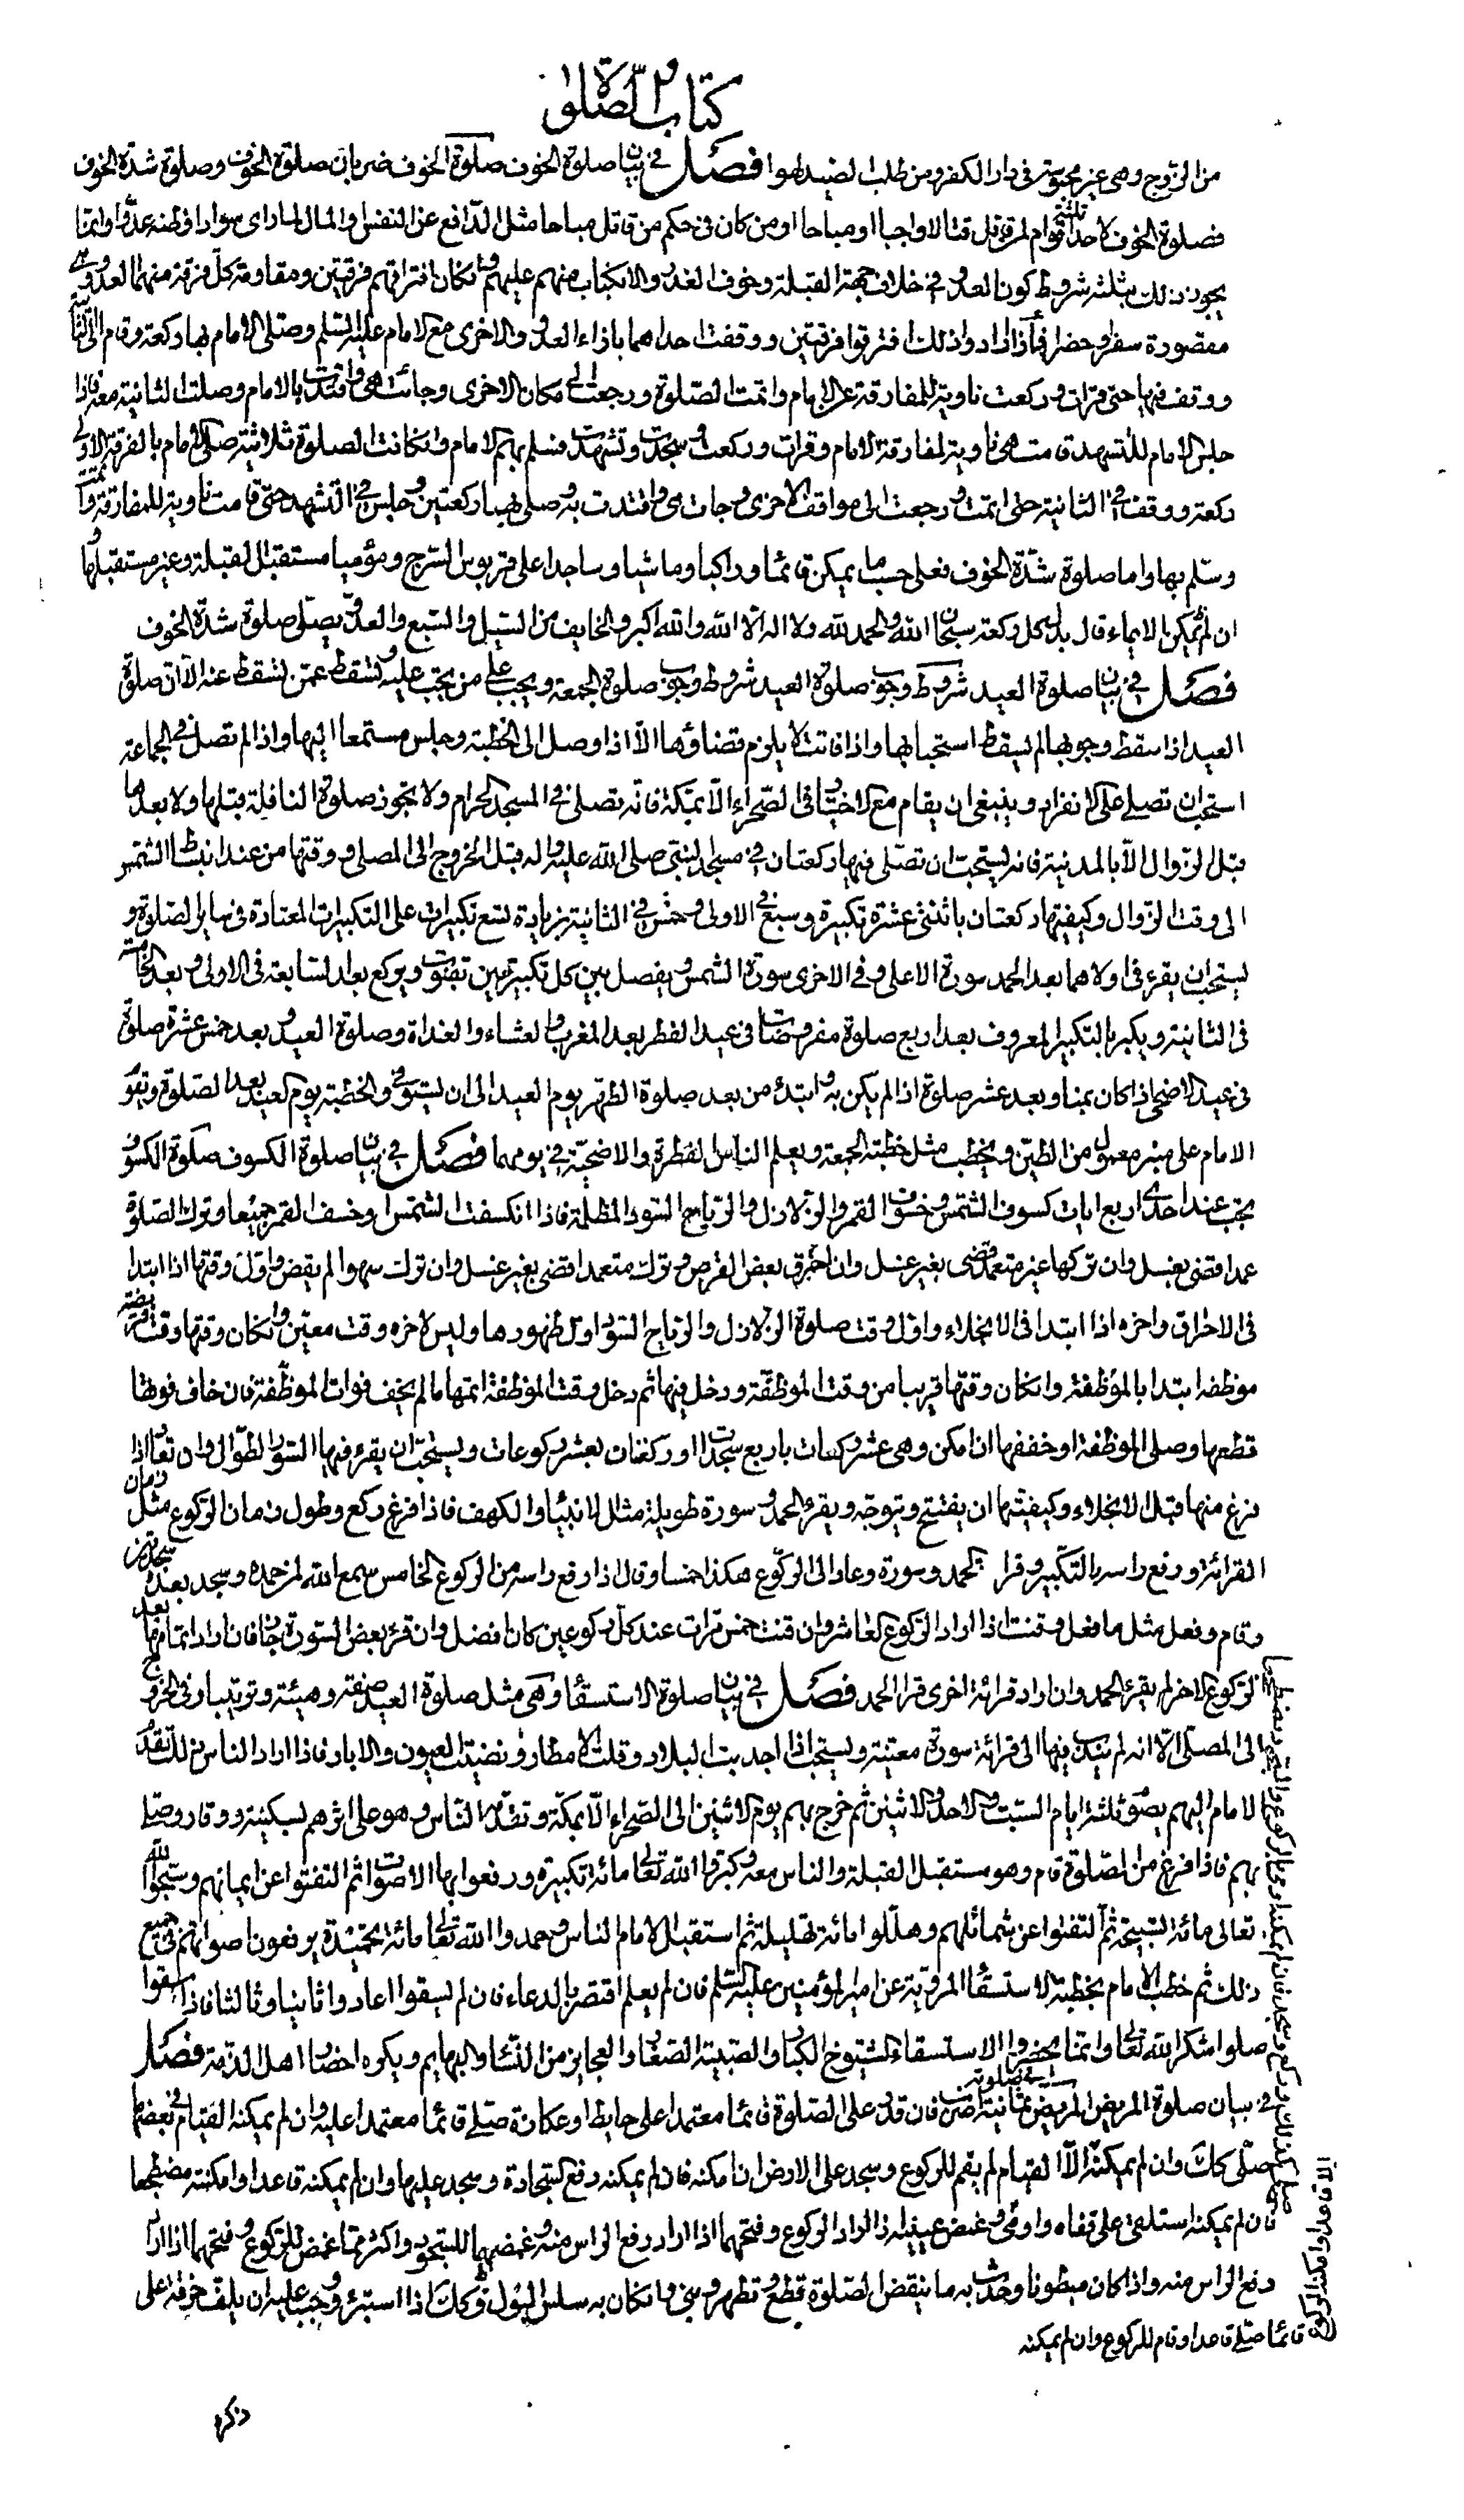 كتاب الصلوة
من الزوج وهى غير محبوسة فى دار الكفر ومن طلب لصيد لهوا فصل في بيان صلوة الخوف صلوة الخوف ضربان صلوة الخوف وصلوة شدة الخوف
فصلوة الخوف لاحد ثلثة اقوام لمن قاتل قتالا واجبا او مباحا او من كان فى حكم من قاتل مباحا مثل الدافع عن النفس والمال لما راى سوادا فظنه عدوا وانما
يجوز ذلك بثلثة شروط كون العدو في خلاف جهة القبلة وخوف الغدر والانكباب منهم عليهم وامكان افتراقهم فرقتين ومقاومة كل فرقة منهما العدو وهى
مقصورة سفرا وحضرا فأذا ارادوا ذلك افترقوا فرقتين ووقفت احداهما باذاء العدو والاخرى مع الامام عليه السلم وصلى الامام بها ركعة وقام الى الثانية
ووقف فيها حتى قرات وركعت ناوية للمفارقة عن الامام واتمت الصلوة ورجعت الى مكان الاخرى وجائت هى واقتدت بالامام وصلت الثانية معه فاذا
جلس الامام للتشهد قامت هى ناوية لمفارقة الامام وقرات وركعت وسجدت وتشهدت فسلم بهم الامام وان كانت الصلوة ثلاثية صلى الامام بالفرقة الاولى
ركعة ووقف في الثانية حتى اتمت ورجعت الى مواقف الاخرى وجات هى واقتدت به وصلى بها ركعتين وجلس في التشهد حتى قامت ناوية للمفارقة واتمت
وسلم بها واما صلوة شدة الخوف فعلى حسب ما يمكن قائما وراكبا وماشيا وساجدا على قربوس السرج ومؤميا مستقبل القبلة وغير مستقبلها و
ان لم يمكن الايماء قال بدل كل ركعة سبحان الله والحمد لله ولا اله الا الله والله اكبر والخايف من السيل والسبع والعدو يصلى صلوة شدة الخوف
فصل في بيان صلوة العيد شروط وجوب صلوة العيد شروط وجوب صلوة الجمعة ويجب على من يجب عليه وتسقط عمن تسقط عنه الا ان صلوة
العيد اذا سقط وجوبها لم يسقط استحبابها واذا فاتت لا يلزم قضاؤها الا اذا وصل الى الخطبة وجلس مستمعا اليها واذا لم تصل في الجماعة
استحب ان تصلى على الانفراد وينبغى ان يقام مع الاختيار فى الصحراء الا بمكة فانه تصلى في المسجد الحرام ولا يجوز صلوة النافلة قبلها ولا بعدها
قبل الزوال الا بالمدنية فانه ليستحب ان تصلى فيها ركعتان في مسجد النبى صلى الله عليه واله قبل الخروج الى المصلى ووقتها من عند انبساط الشمس
الى وقت الزوال وكيفيتها ركعتان باثنتى عشرة تكبيرة وسبع في الاولى وخمس في الثانية بزيادة تسع تكبيرات على التكبيرات المعتادة فى ساير الصلوة و
ليستحب ان يقرء فى اولاهما بعد الحمد سورة الاعلى وفي الاخرى سورة الشمس ويفصل بين كل تكبيرتين بقنوت ويركع بعد السابعة فى الاولى وبعد الخامسة
فى الثانية ويكبر بالتكبير المعروف بعد اربع صلوة مفروضات فى عيد الفطر بعد المغرب والعشاء والغداة وصلوة العيد وبعد خمس عشرة صلوة
فى عيد الاضحى اذا كان بمنا وبعد عشر صلوة اذا لم يكن به وابتدء من بعد صلوة الظهر يوم العيد الى ان ليستوفى والخطبة يوم العيد بعد الصلوة ويقوم
الامام على منبر معمول من الطين ويخطب مثل خطبة الجمعة ويعلم الناس الفطرة والاضحية في يومهما فصل في بيان صلوة الكسوف صلوة الكسوف
يجب عند احدى اربع ايات كسوف الشمس وخسوف القمر والزلازل والرياح السود المظلمة فاذا انكسفت الشمس او خسف القمر جميعا وترك الصلوة
عمدا قضى بغسل وان تركها غير متعمد قضى بغير غسل وان احترق بعض القرص وترك متعمدا قضى بغير غسل وان ترك سهوا لم يقض واول وقتها اذا ابتدا
فى الاحتراق واخره اذا ابتدا فى الانجلاء واول وقت صلوة الزلازل والرياح السود اول ظهورها وليس لاخره وقت معين وان كان وقتها وقت فريضة
موظفه ابتدا بالموظفة وان كان وقتها قريبا من وقت الموظفة ودخل فيها ثم دخل وقت الموظفة اتمها ما لم يخف فوات الموظفة فان خاف فوتها
قطعها وصلى الموظفة او خففها ان امكن وهى عشر ركعات باربع سجدات او ركعتان بعشر ركوعات ويستحب ان يقرء فيها السور الطوال وان تعاد اذا
فرغ منها قبل الانجلاء وكيفيتها ان يفتتح ويتوجه ويقرء الحمد وسورة طويلة مثل الانبياء والكهف فاذا فرغ ركع وطول زمان الركوع مثل زمان
القرائة ورفع راسه بالتكبير وقرا الحمد وسورة وعاد الى الركوع هكذا خمسا وقال اذا رفع راسه من الركوع الخامس سمع الله لمن حمده وسجد بعده سجدتين
وقام وفعل مثل ما فعل وقنت اذا اراد الركوع العاشر وان قنت خمس مرات عند كل ركوعين كان افضل وان قرء بعض السورة جاز فان اراد اتمامها بعد
الركوع الاخر لم يقرء الحمد وان اراد قرائة اخرى قرا الحمد فصل في بيان صلوة الاستسقاء وهى مثل صلوة العيد صفة وهيئة وترتيبا وفى الخروج
الى المصلى الا انه لم يثبت فيها الى قرائة سورة معينة ويستحب اذا اجدبت البلاد وقلت الامطار ونضبت العيون والابار فاذا اراد الناس ذلك تقدم
الامام اليهم بصوم ثلثة ايام السبت والاحد والاثنين ثم خرج بهم يوم الاثنين الى الصحراء الا بمكة وتقدم الناس وهو على اثرهم بسكينة ووقار وصلى
بهم فاذا فرغ من الصلوة قام وهو مستقبل القبلة والناس معه وكبروا الله تعالى مائة تكبيرة ورفعوا بها الاصوات ثم التفتوا عن ايمانهم وسبحوا الله
تعالى مائة تسبيحة ثم التفتوا عن شمائلهم وهللوا مائة تهليلة ثم استقبل الامام الناس وحمدوا الله تعالى مائة تحميدة يرفعون اصواتهم فى جميع
ذلك ثم خطب الامام بخطبة الاستسقاء المروية عن امير المؤمنين عليه السلم فان لم يعلم اقتصر بالدعاء فان لم ليسقوا اعادوا ثانيا وثالثا فاذا سقوا
صلوا شكرا لله تعالى وانما يحضر الاستسقاء الشيوخ الكبار والصبية الصغار والعجايز من النساء والبهايم ويكره احضار اهل الذمة فصل
في بيان صلوة المريض المريض في صلوته ثمانية اضرب فان قدر على الصلوة قائما معتمدا على حايط او عكازة صلى قائما معتمدا عليه وان لم يمكنه القيام في بعضها
صلى كك وان لم يمكنه الا القيام لم يقم للركوع وسجد على الارض ان امكنه فان لم يمكنه رفع السجادة وسجد عليها وان لم يمكنه قاعدا وامكنه مضطجعا
فان لم يمكنه استلقى على قفاه واومى وغمض عينيه اذا اراد الركوع وفتحهما اذا اراد رفع الراس منه وغمضهما للسجود واكثر مما غمض للركوع وفتحهما اذا اراد
رفع الراس منه واذا كان مبطونا وحدث به ما ينقض الصلوة قطع وتطهر وبنى وان كان به سلس البول فكك اذا استبرء وجب عليه ان يلف خرقة على
قائما صلى قاعدا وقام للركوع وان لم يمكنه
ذكره